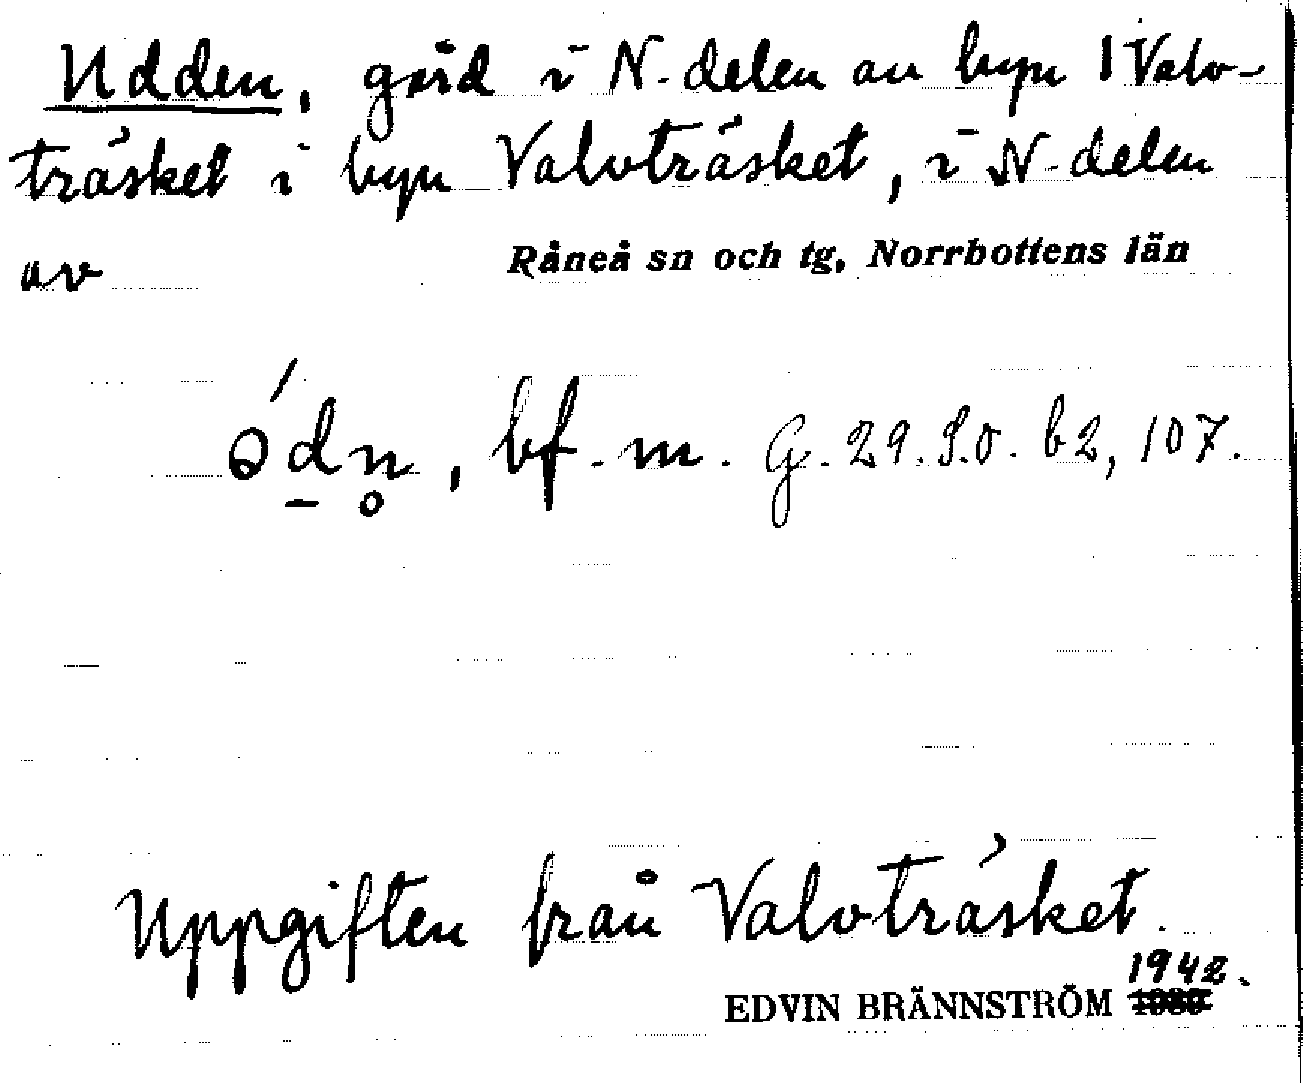 Udden, gård i N-delen av byn 1 Valvo-
träsket i byn Valvoträsket, i N-delen
av Råneå sn och tg, Norrbottens län
bf. m. G. 29. S.O. b2, 107.
Uppgiften från Valvoträsket.
1942.
EDVIN BRÄNNSTRÖM